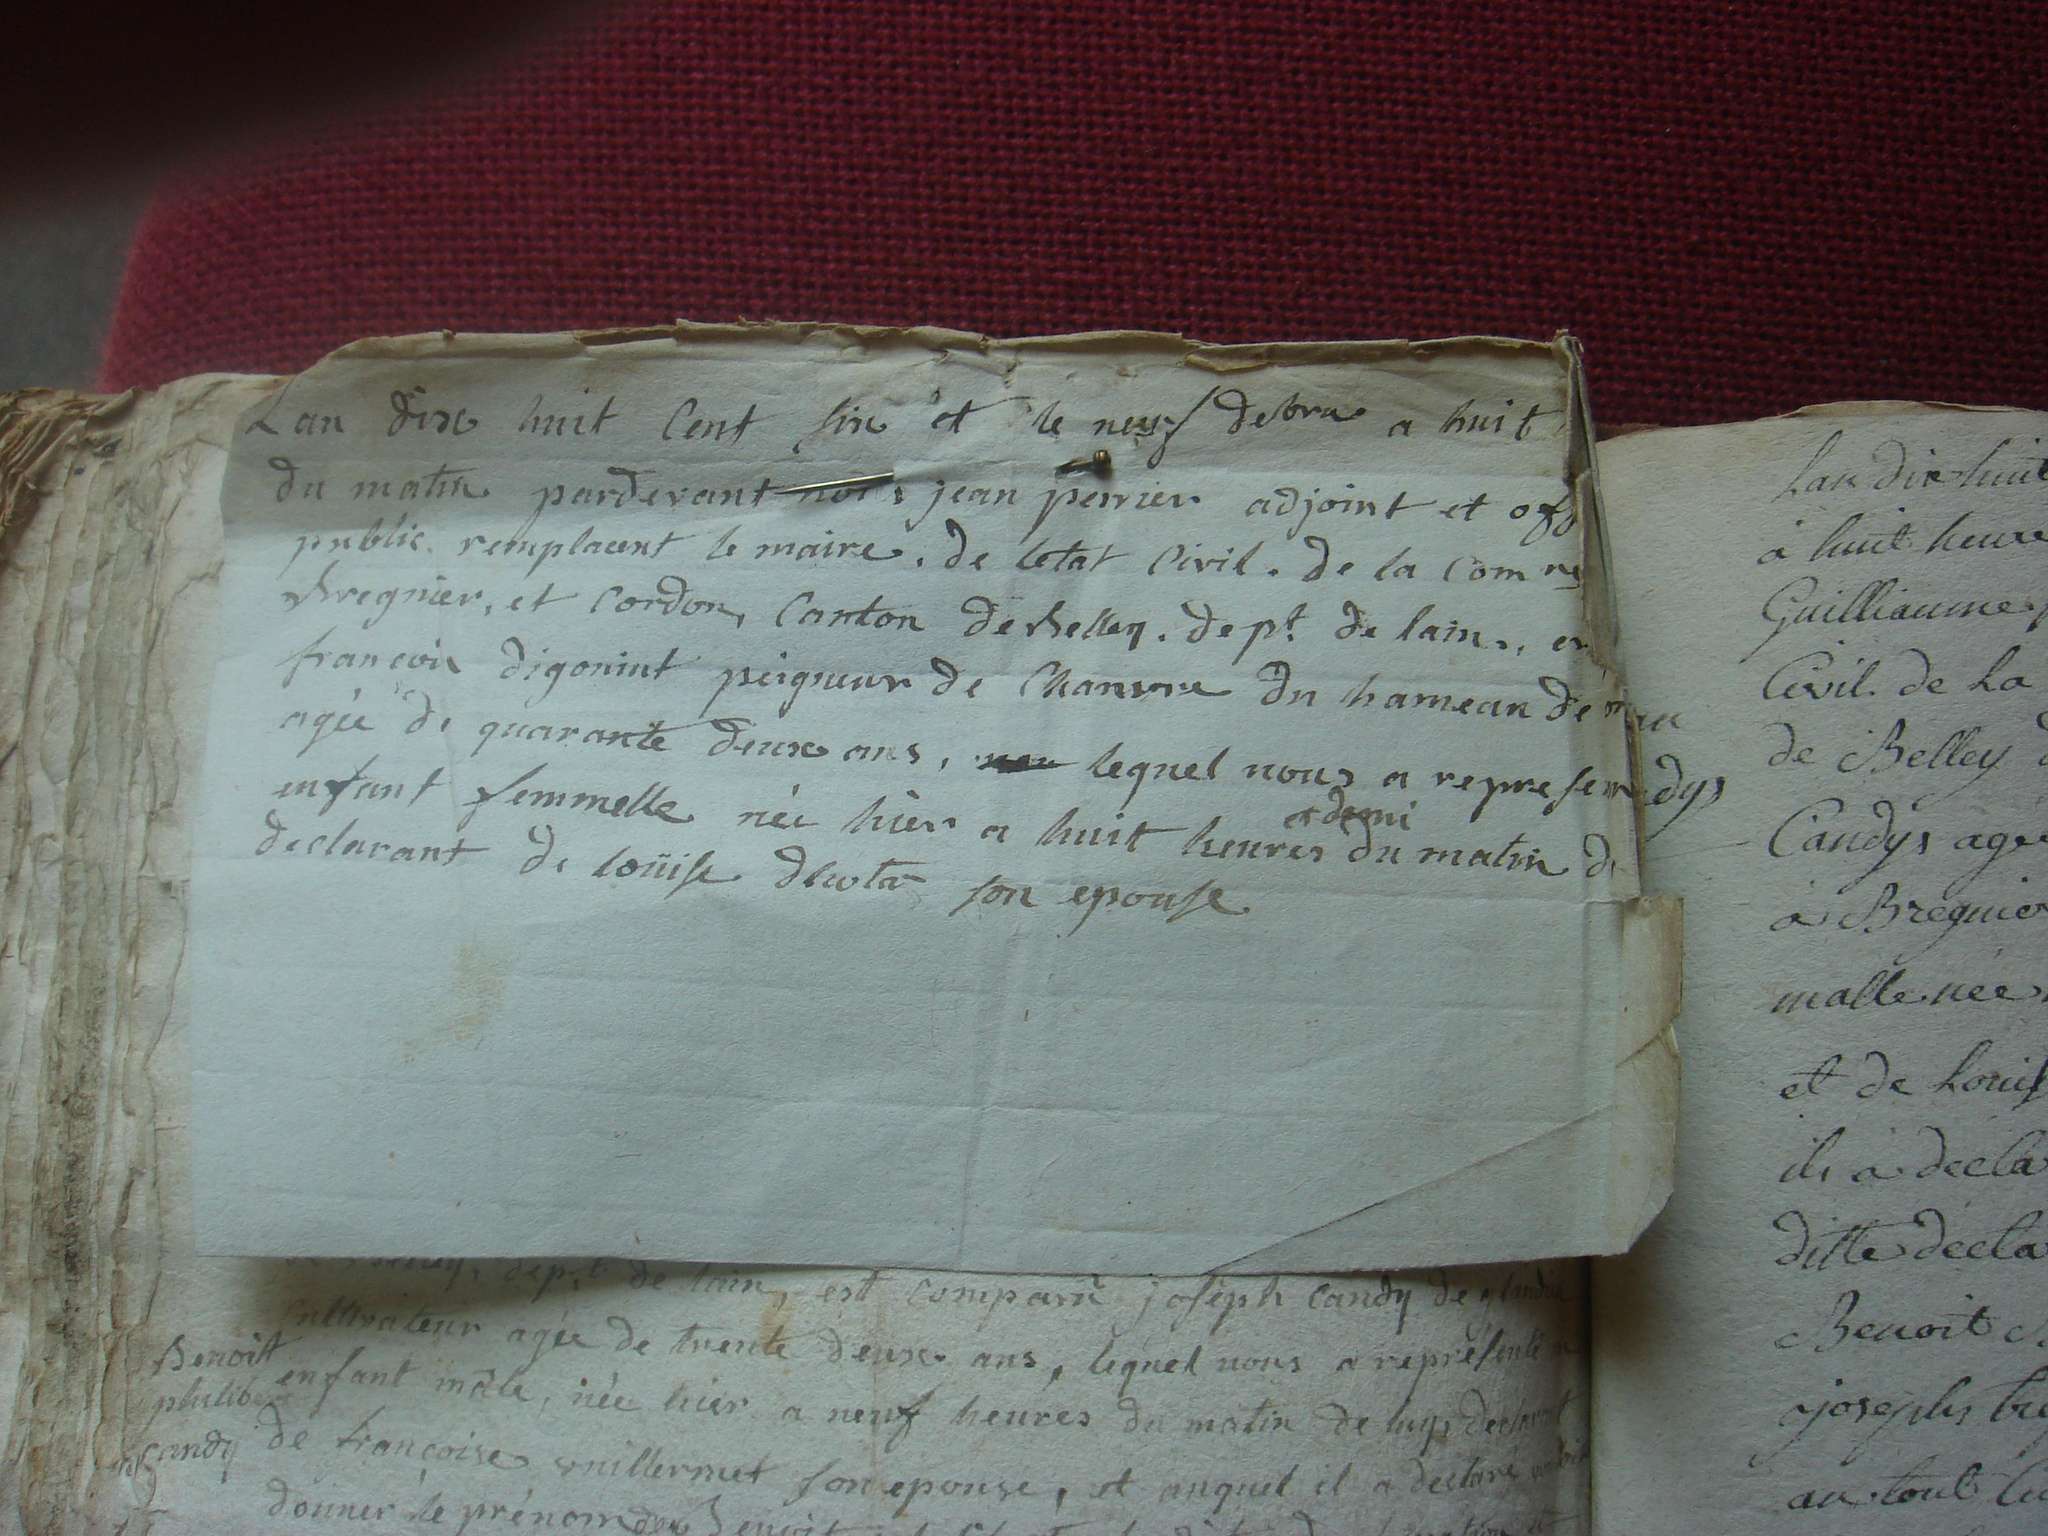 Lan dix huit Cent six et le neuf debre a huit
du matin pardevant nous jean perrier adjoint et off
public remplacent le maire. de letat Civil. de la Comne
Bregnier, et Cordon, Canton de Belley. dept. de lain, en
françois digonint peigneur de Chanvre du hameau de
agée de quarante deux ans, lequel nous a represen
enfant femmelle née hier a huit heures et demi du matin de
declarant de loüise son epouse
dept. de lain, est comparu joseph Candy de glandieu
Cultivateur agée de trente deux ans, lequel nous a représenté
Benoitt
enfant mâle, née hier a neuf heures du matin de luy declarant
philiber
de françoise vuillermet son epouse, et auquel il a declaré
Candy
donner le prénom de Benoit
Lan dix huit
à huit heure
Guilliaume
Civil de La
de Belley
Candys agé
a Bregnier
malle née
et de Louis
ils a decla
ditte décla
Benoit
ajosephs
au tout